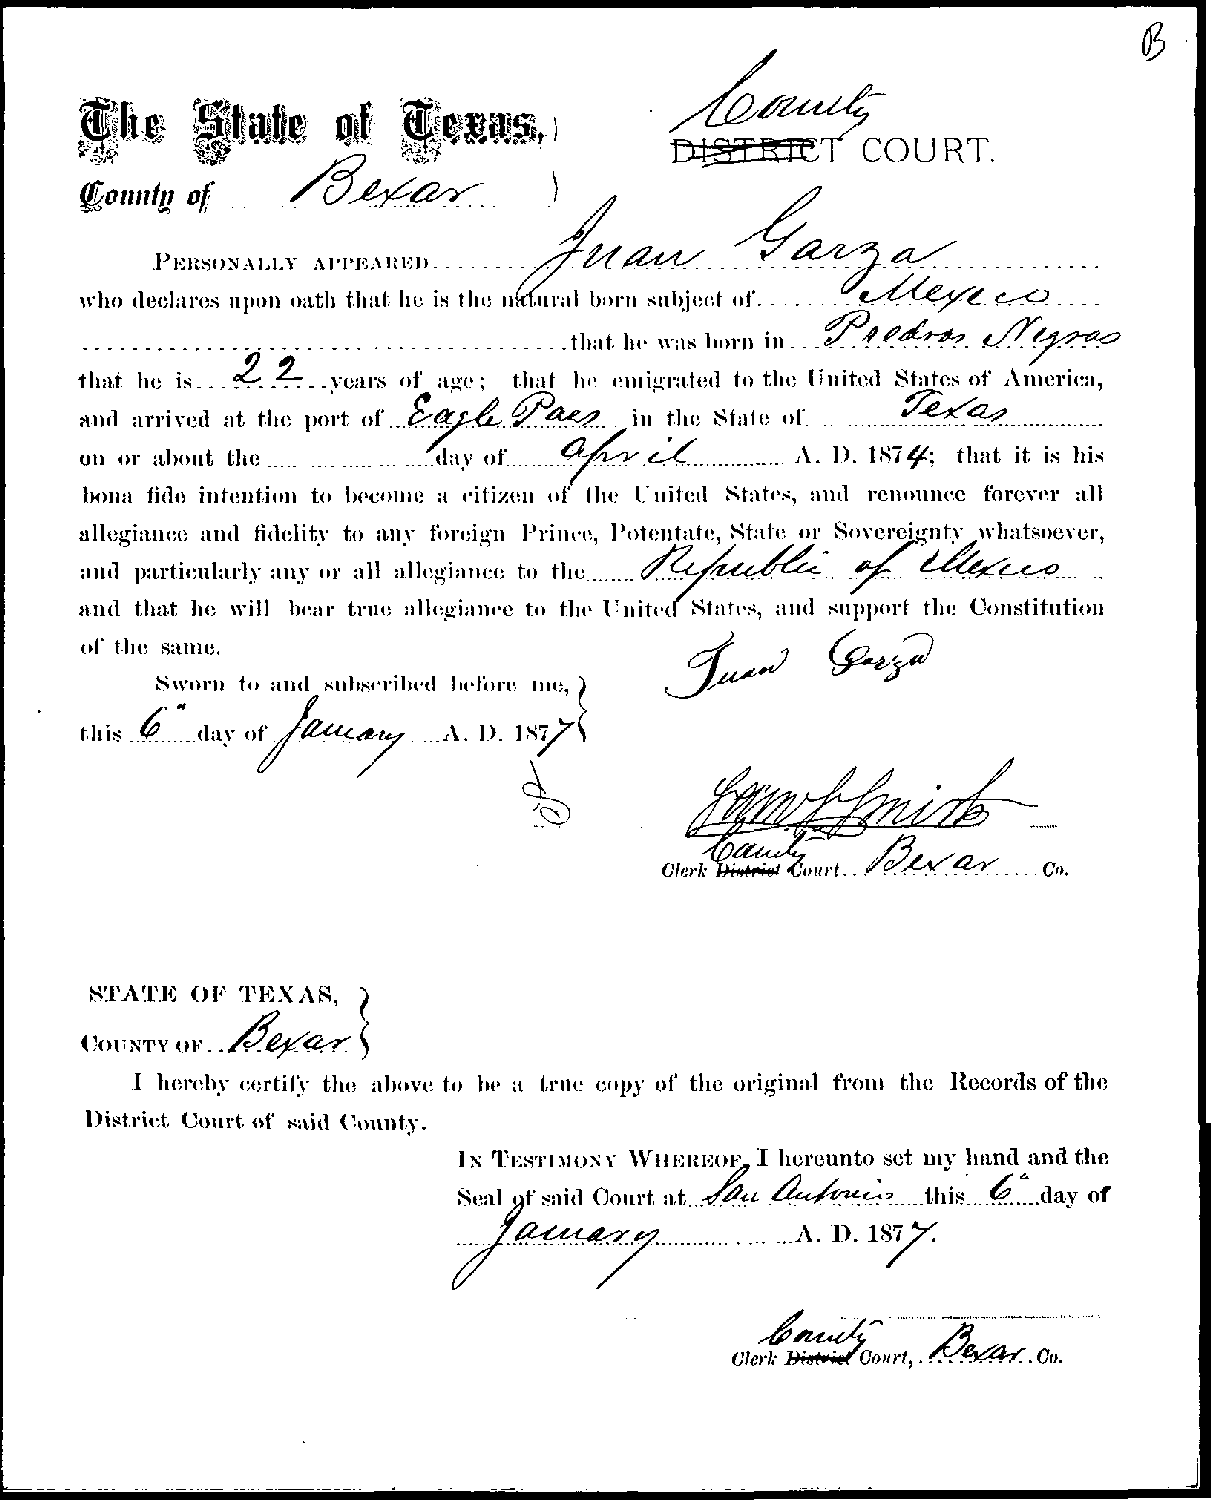 B
The State of Texas,
County
DISTRICT COURT.
County of Bexar
PERSONALLY APPEARED Juan Garza
who declares upon oath that he is the natural born subject of Mexico
that he was born in Piedras Negras
that he is 22 years of age; that he emigrated to the United States of America,
and arrived at the port of Eagle Pass in the State of Texas
on or about the day of April A. D. 1874; that it is his
bona fide intention to become a citizen of the United States, and renounce forever all
allegiance and fidelity to any foreign Prince, Potentate, State or Sovereignty whatsoever,
and particularly any or all allegiance to the Republic of Mexico
and that he will bear true allegiance to the United States, and support the Constitution
of the same.
Juan Garza
Sworn to and subscribed before me,
this 6" day of January A. D. 1877
Sam S Smith
County
Clerk District Court Bexar Co.
STATE OF TEXAS,
COUNTY OF Bexar
I hereby certify the above to be a true copy of the original from the Records of the
District Court of said County.
IN TESTIMONY WHEREOF, I hereunto set my hand and the
Seal of said Court at San Antonio this 6" day of
January A. D. 1877.
County
Clerk District Court, Bexar Co.